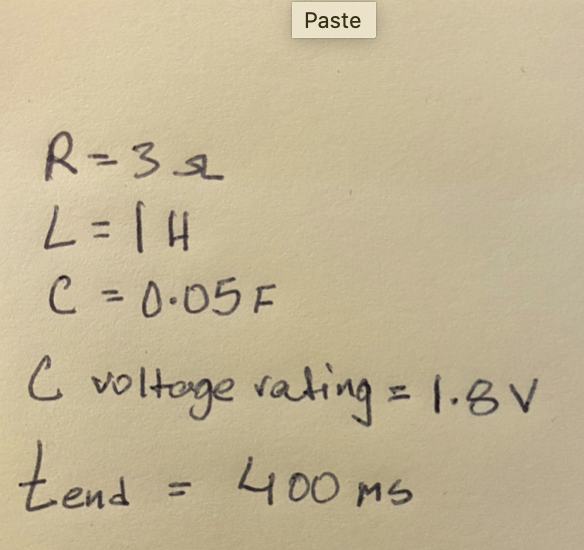 Paste
R = 3 Ω
L = 1 H
C = 0.05 F
C voltage rating = 1.8 V
tend = 400 ms